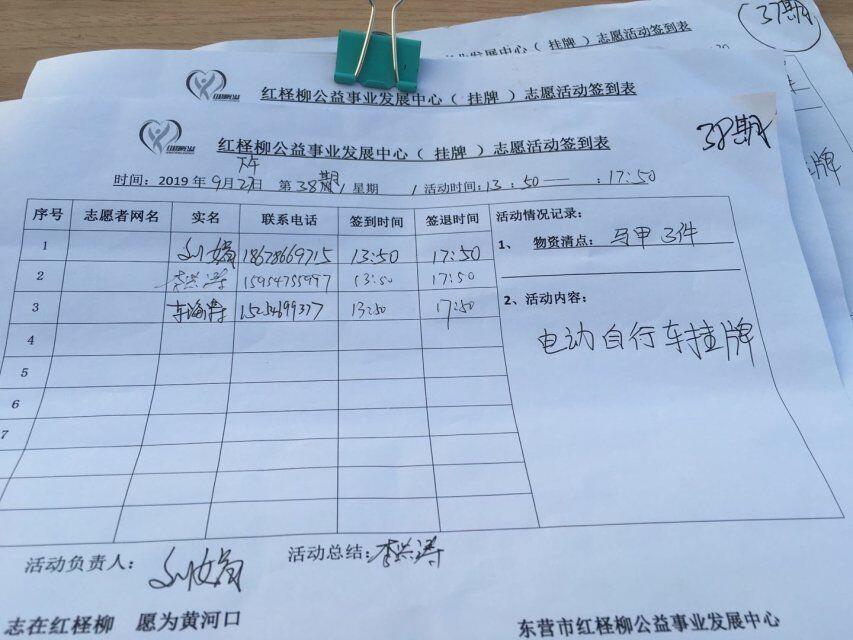 37期
志愿活动签到表
红柽柳公益事业发展中心（ 挂牌 ）志愿活动签到表
红柽柳公益事业发展中心（ 挂牌 ）志愿活动签到表
38期
下午
时间：2019年9月27日 第38期 星期 / 活动时间：13：50——：17：50
序号 志愿者网名 实名 联系电话 签到时间 签退时间 活动情况记录：
1 刘娟 18678669715 13:50 17:50
1、 物资清点：马甲3件
2 李兴涛 15954755997 13:50 17:50
3 13:50 17:50
2、活动内容：
电动自行车挂牌
4
5
6
7
活动负责人：刘娟 活动总结：李兴涛
志在红柽柳 愿为黄河口
东营市红柽柳公益事业发展中心